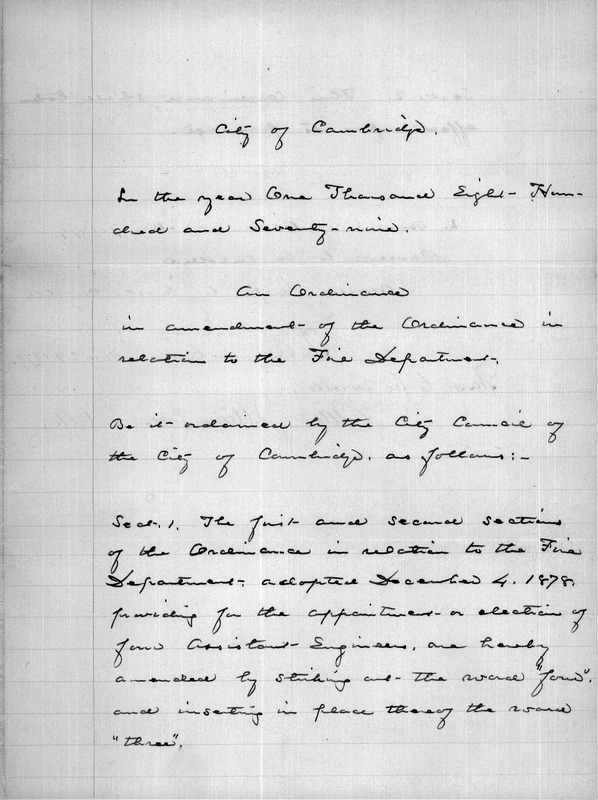 City of Cambridge.
In the year One Thousand Eight Hun-
dred and Seventy-nine.
An Ordinance
in amendment of the Ordinance in
relation to the Fire Department.
Be it ordained by the City Council of
the City of Cambridge, as follows:-
Sect. 1. The first and second sections
of the Ordinance in relation to the Fire
Department, adopted December 4, 1878,
providing for the appointment or election of
four Assistant Engineers, are hereby
amended by striking out the word "four",
and inserting in place thereof the word
"three".